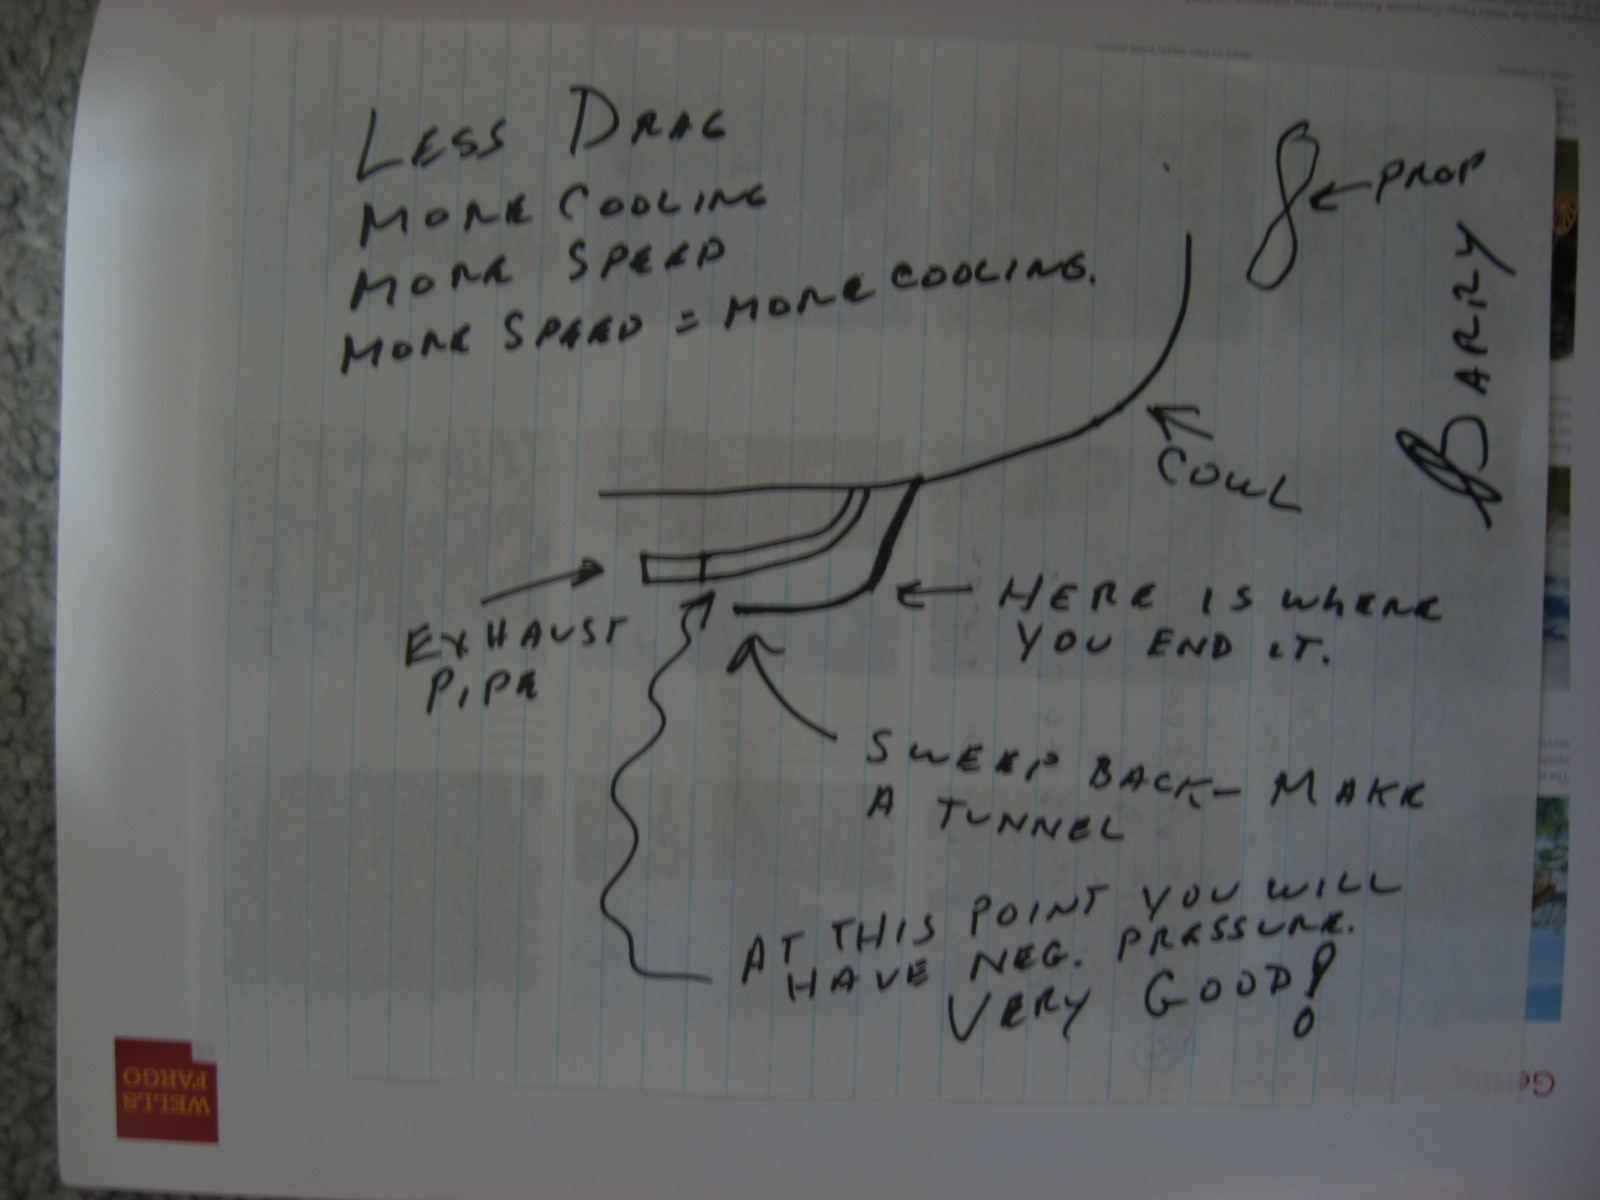 LESS DRAG
MORE COOLING
MORE SPEED
MORE SPEED = MORE COOLING.
PROP
BARRY
COWL
EXHAUST
PIPE
HERE IS WHERE
YOU END IT.
SWEEP BACK - MAKE
A TUNNEL
AT THIS POINT YOU WILL
HAVE NEG. PRESSURE.
VERY GOOD!
WELLS
FARGO